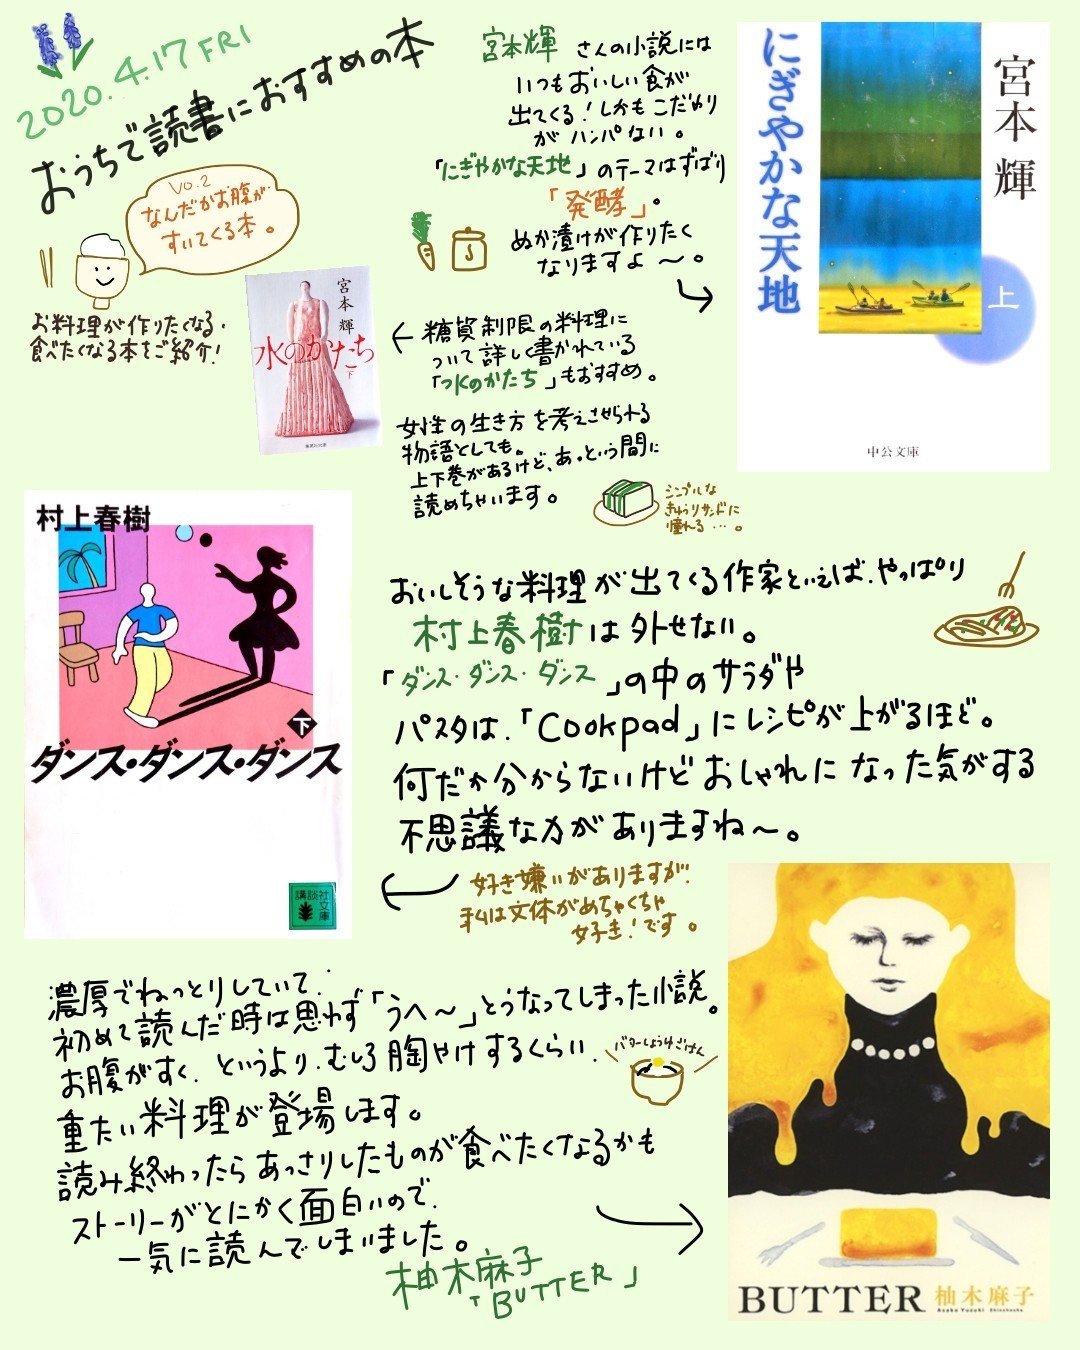 2020.4.17 FRI
おうちで読書におすすめの本
Vo.2
なんだかお腹が
すいてくる本。
お料理が作りたくなる・
食べたくなる本をご紹介!
宮本輝 さんの小説には
いつもおいしい食が
出てくる!しかもこだわり
がハンパない。
「にぎやかな天地」のテーマはずばり
「発酵」。
ぬか漬けが作りたく
なりますよ〜。
宮本 輝
にぎやかな天地
上
中公文庫
宮本 輝
水のかたち
下
集英社文庫
糖質制限の料理に
ついて詳しく書かれている
「水のかたち」もおすすめ。
女性の生き方を考えさせられる
物語としても。
上下巻があるけど、あっという間に
読めちゃいます。
シンプルな
きゅうりサンドに
憧れる…。
村上春樹
下
ダンス・ダンス・ダンス
講談社文庫
おいしそうな料理が出てくる作家といえば、やっぱり
村上春樹は外せない。
「ダンス・ダンス・ダンス」の中のサラダや
パスタは、「Cookpad」にレシピが上がるほど。
何だか分からないけどおしゃれになった気がする
不思議な力がありますね〜。
好き嫌いがありますが、
私は文体がめちゃくちゃ
好き!です。
濃厚でねっとりしていて、
初めて読んだ時は思わず「うへ〜」とうなってしまった小説。
お腹がすく、というより、むしろ胸やけするくらい、
重たい料理が登場します。
読み終わったらあっさりしたものが食べたくなるかも
ストーリーがとにかく面白いので、
一気に読んでしまいました。
柚木麻子
「BUTTER」
バターしょうゆごはん
BUTTER 柚木麻子
Asako Yuzuki Shinchosha